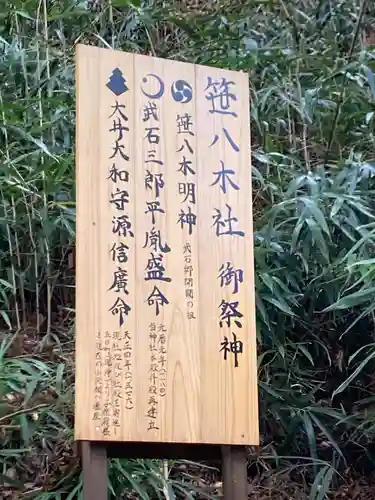 笹八木社 御祭神
笹八木明神 武石郷開闢の祖
武石三郎平胤盛命
元暦元年(一一八四)
当神社本殿拝殿再建立
大井大和守源信廣命
天正四年(一五七六)
現社殿及び社殿を